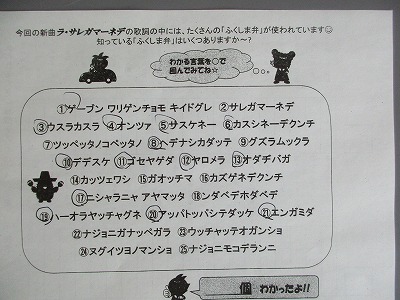 今回の新曲ラ・サレガマーネデの歌詞の中には、たくさんの「ふくしま弁」が使われています☺
知っている「ふくしま弁」はいくつありますか～?
わかる言葉を○で
囲んでみてね☆
①ゲーブン ワリゲンチョモ キイドグレ ②サレガマーネデ
③ウスラカスラ ④オンツァ ⑤サスケネー ⑥カスシネーデクンチ
⑦ツッペッタノコペッタノ ⑧ヘデナシカダッテ ⑨グズラムックラ
⑩デデスケ ⑪ゴセヤゲダ ⑫ヤロメラ ⑬オダヂバガ
⑭カッツェワシ ⑮ガオッチマ ⑯カズゲネデクンチ
⑰ニシャラニャ アヤマッタ ⑱ンダベデホダベデ
⑲ハーオラヤッチャグネ ⑳アッパトッパシテダッケ ㉑エンガミダ
㉒ナジョニガナッペガラ ㉓ウッチャッテオガンショ
㉔ヌグイツヨノマンショ ㉕ナジョニモコデランニ
個 わかったよ!!